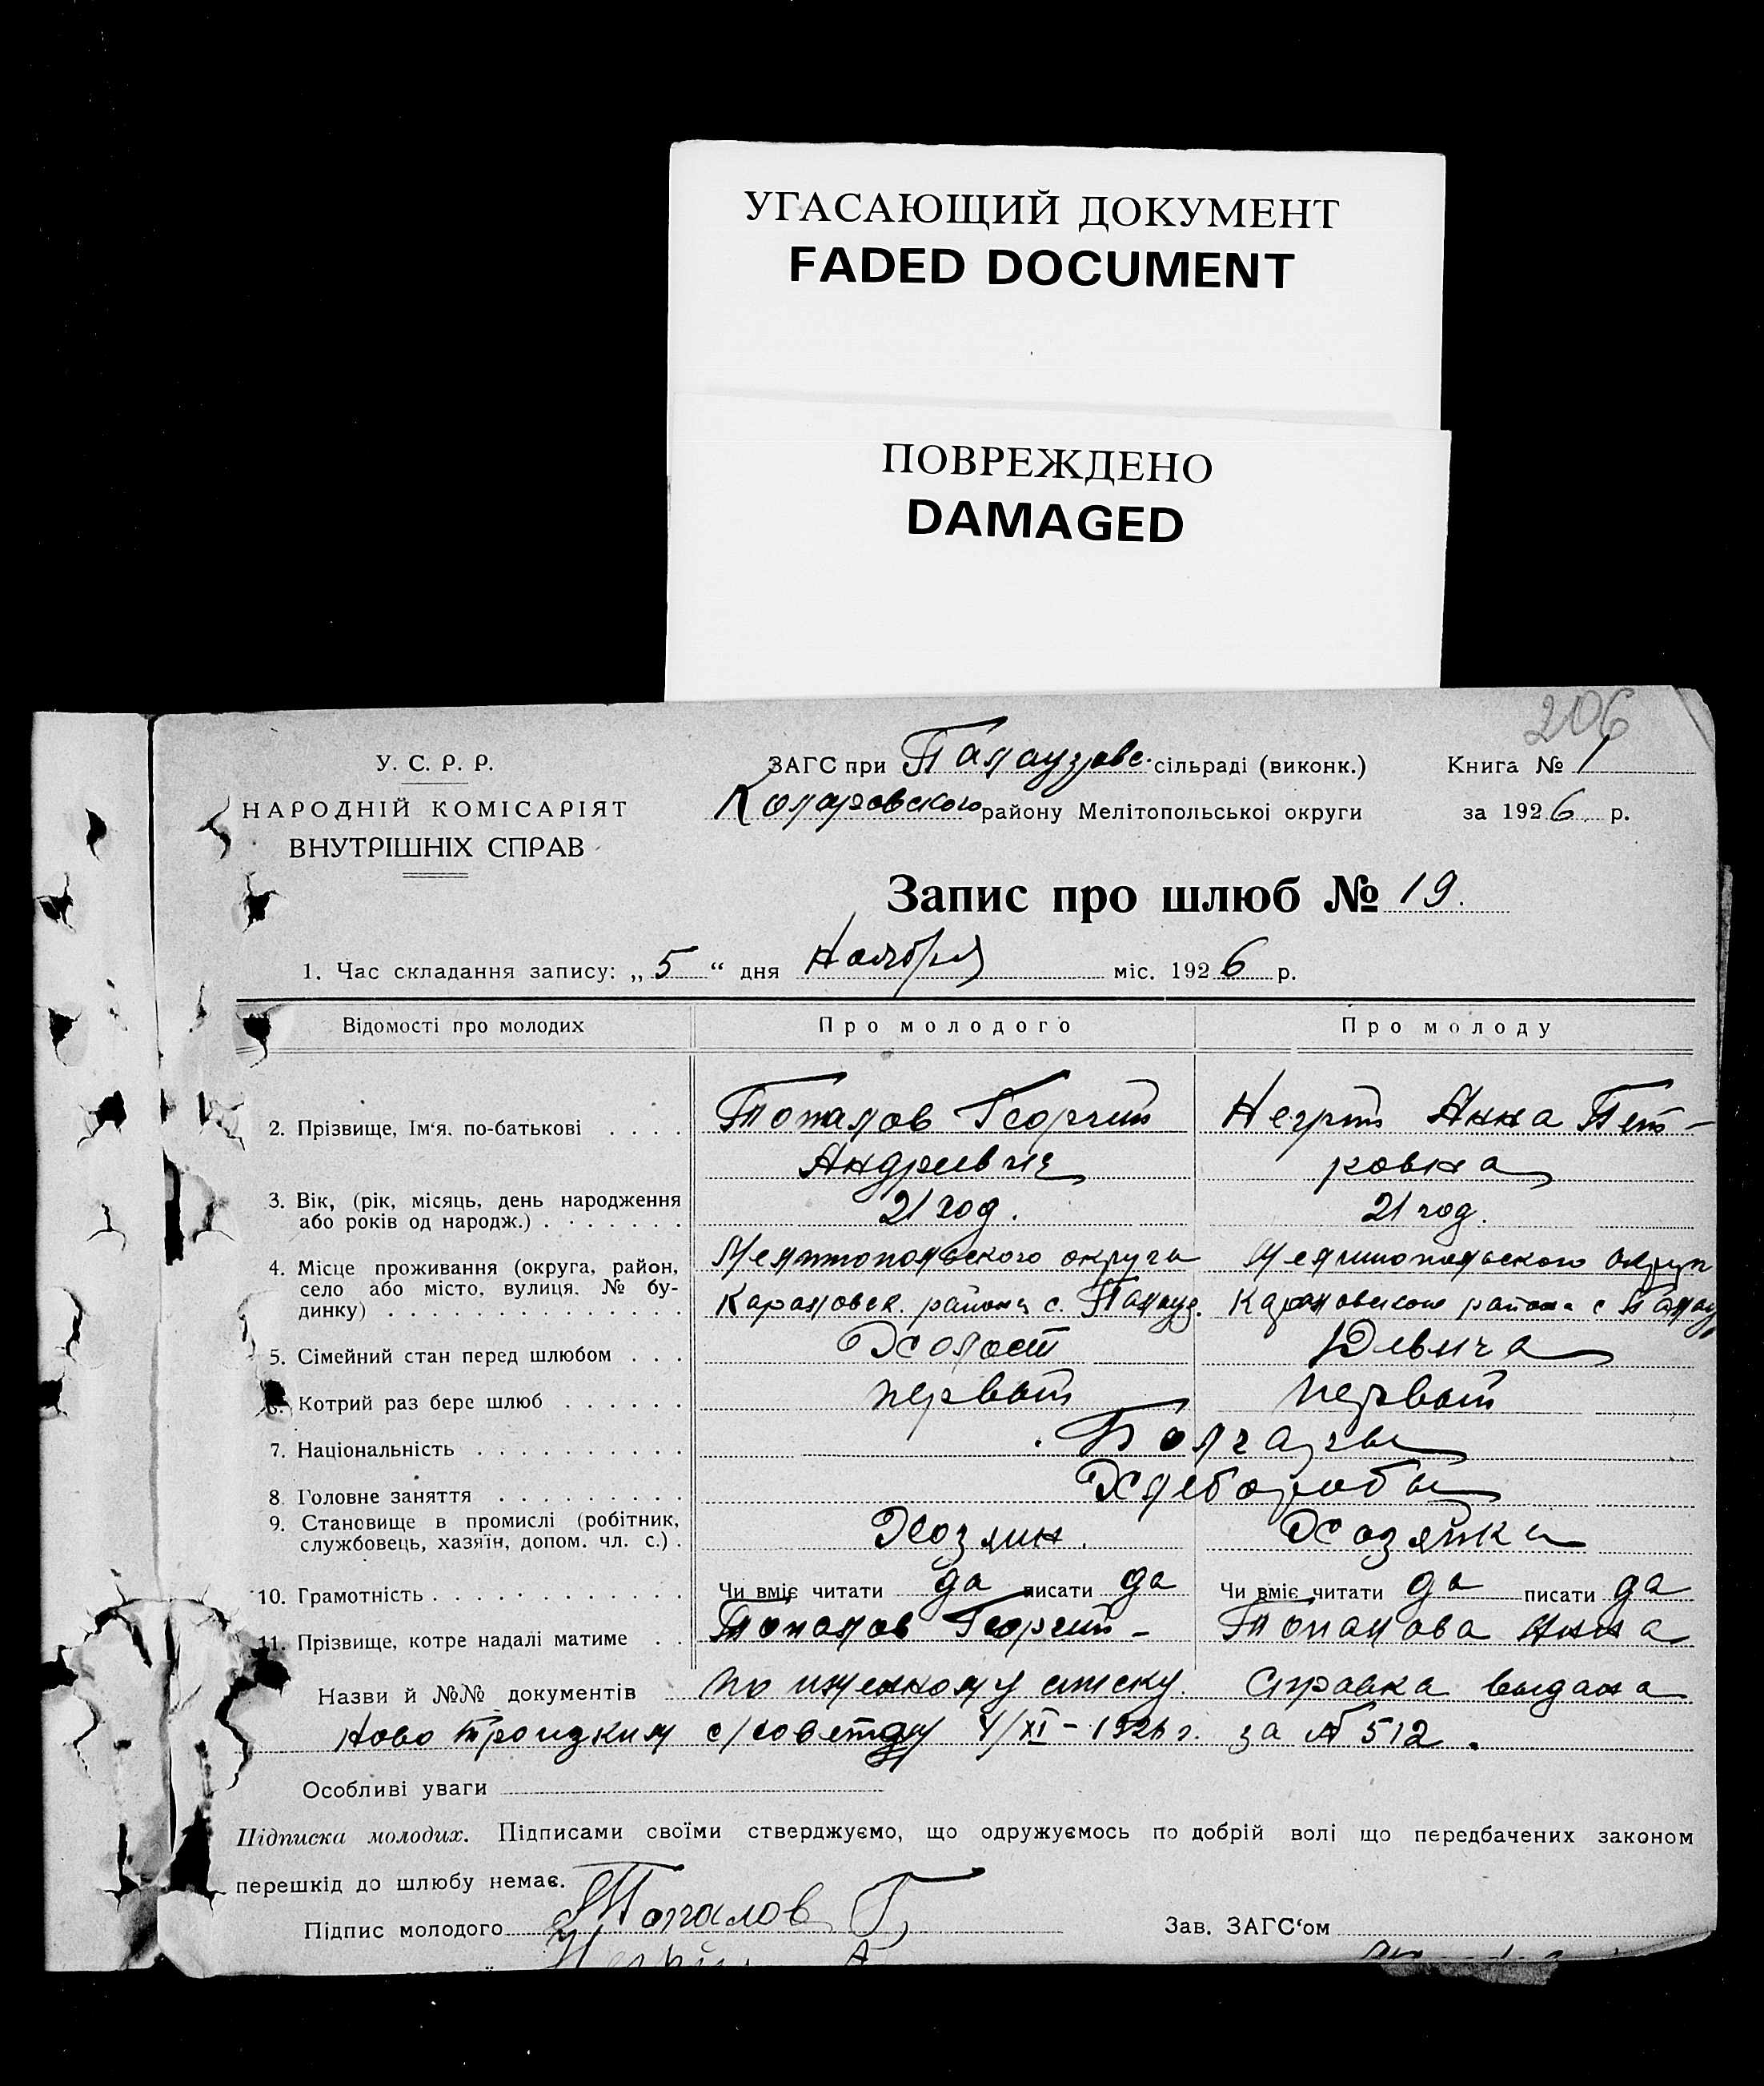 УГАСАЮЩИЙ ДОКУМЕНТ
FADED DOCUMENT
ПОВРЕЖДЕНО
DAMAGED
206
У. С. Р. Р.
ЗАГС при Палаузовс. сільраді (виконк.)
Книга № 1
НАРОДНІЙ КОМІСАРІЯТ
Коларовского району Мелітопольської округи
за 1926 р.
ВНУТРІШНІХ СПРАВ
Запис про шлюб № 19.
1. Час складання запису: „5“ дня Ноября міс. 1926 р.
Відомості про молодих
Про молодого
Про молоду
2. Прізвище, Ім'я. по-батькові . . . .
Топалов Георгий
Негрий Анна Пет-
Андреевич
ровна
3. Вік, (рік, місяць, день народження
або років од народж.) . . . . . . .
21 год.
21 год.
4. Місце проживання (округа, район,
село або місто, вулиця, № бу-
динку) . . . . . . . . . . . . . .
Мелитопольского округа
Мелитопольского округ
Караловск. района с. Палауз.
Кароловского района с Палау
5. Сімейний стан перед шлюбом . . .
Холост
Девича
6. Котрий раз бере шлюб . . . . . .
первый
первый
7. Національність . . . . . . . . . .
Болгары
8. Головне заняття . . . . . . . . .
Хлеборобы
9. Становище в промислі (робітник,
службовець, хазяїн, допом. чл. с.) .
Хозяин.
Хозяйка
10. Грамотність . . . . . . . . . . . .
Чи вміє читати да писати да
Чи вміє читати да писати да
11. Прізвище, котре надалі матиме . .
Топалов Георгий -
Топалова Анна
Назви й №№ документів по именному списку. Справка выдана
Ново Троицким с/советом 4/XI - 1926 г. за № 512.
Особливі уваги
Підписка молодих. Підписами своїми стверджуємо, що одружуємось по добрій волі що передбачених законом
перешкід до шлюбу немає.
Підпис молодого Топалов Г.
Зав. ЗАГС'ом